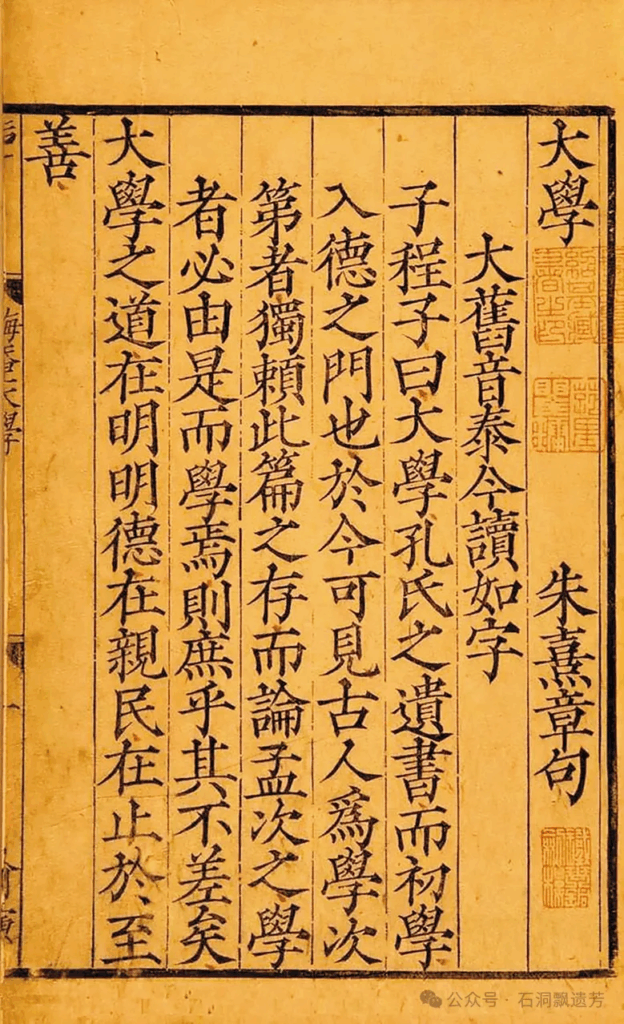 大學 朱熹章句
大舊音泰今讀如字
子程子曰大學孔氏之遺書而初學
入德之門也於今可見古人爲學次
第者獨賴此篇之存而論孟次之學
者必由是而學焉則庶乎其不差矣
大學之道在明明德在親民在止於至
善
公众号·石洞飘遗芳